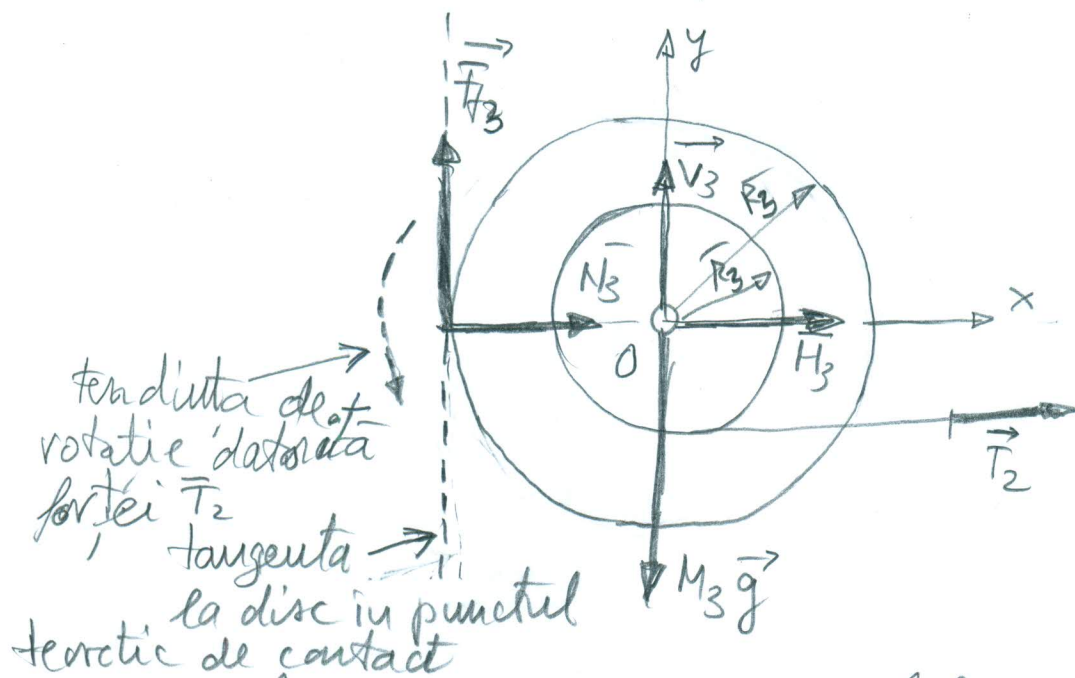 y
F̄f3
V3
R3
N̄3
r3
x
O
H̄3
tendința de
rotație datorată
forței T̄2
T2
tangenta
la disc in punctul
teoretic de contact
M3 g